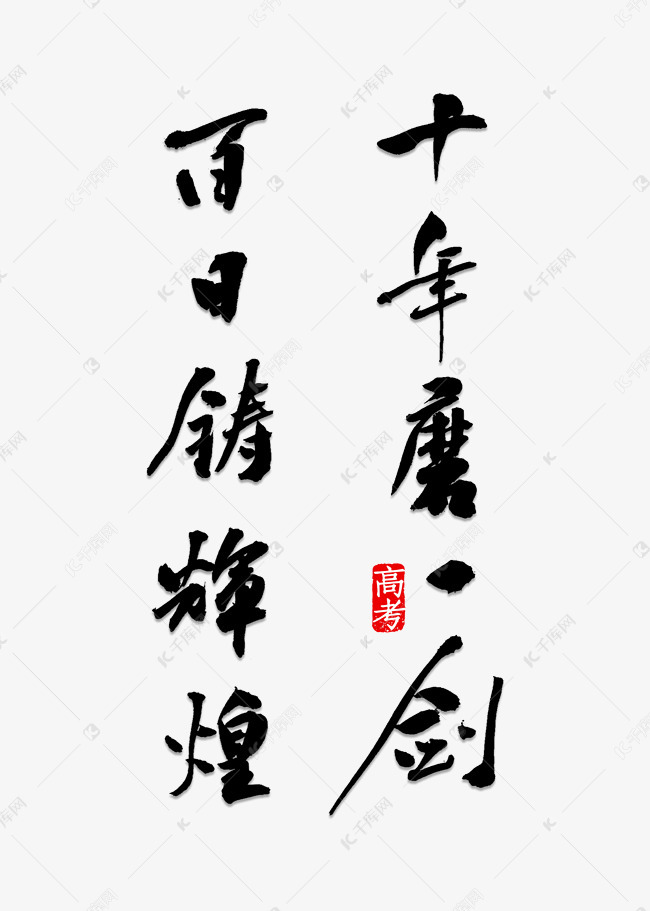 十年磨一剑
百日铸辉煌
高考
千库网